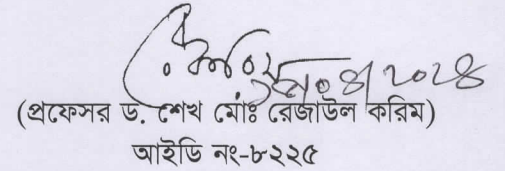 (প্রফেসর ড. শেখ মোঃ রেজাউল করিম)
আইডি নং-৮২২৫